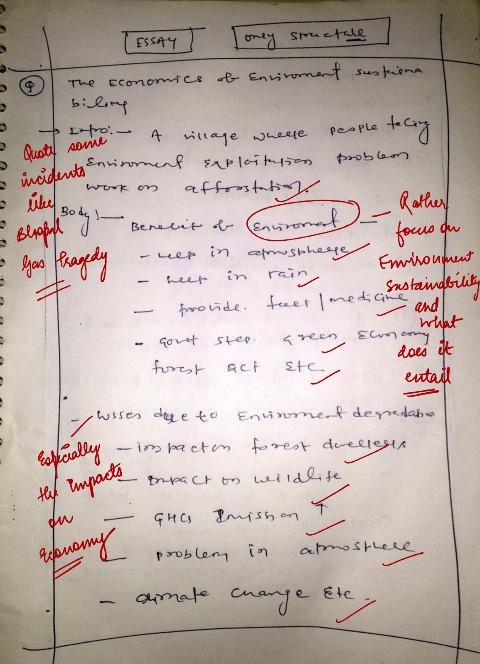 ESSAY
only structure
Q The Economics of Enviroment sustaina
bility
→ Intro:- A village wheere people facing
Enviroment exploitation problem
work on afforstation.
Quote some
incidents
like
Bhopal
gas tragedy
Body:- Benefit of Enviroment
- Rather
focus on
Environment
sustainability
and
what
does it
entail
- help in atmospheere
- help in rain
- provide. fuel/medicine
- Govt step. green Economy
forest act Etc
- losses due to Enviroment degradation
Especially
the impacts
on
Economy
- impact on forest dwellers
- Impact on wildlife
- GHGs Emission ↑
- problem in atmosphere
- climate change Etc.